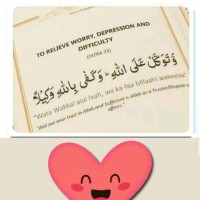 TO RELIEVE WORRY, DEPRESSION AND
DIFFICULTY
(DU'AA 23)
وَتَوَكَّلْ عَلَى اللَّهِ ۚ وَكَفَىٰ بِاللَّهِ وَكِيلًا
"Wata Wakkal alal laah, wa kafaa billaahi wakeelaa"
"And put your trust in Allah, and Sufficient is Allah as a Trustee/Disposer
affairs."